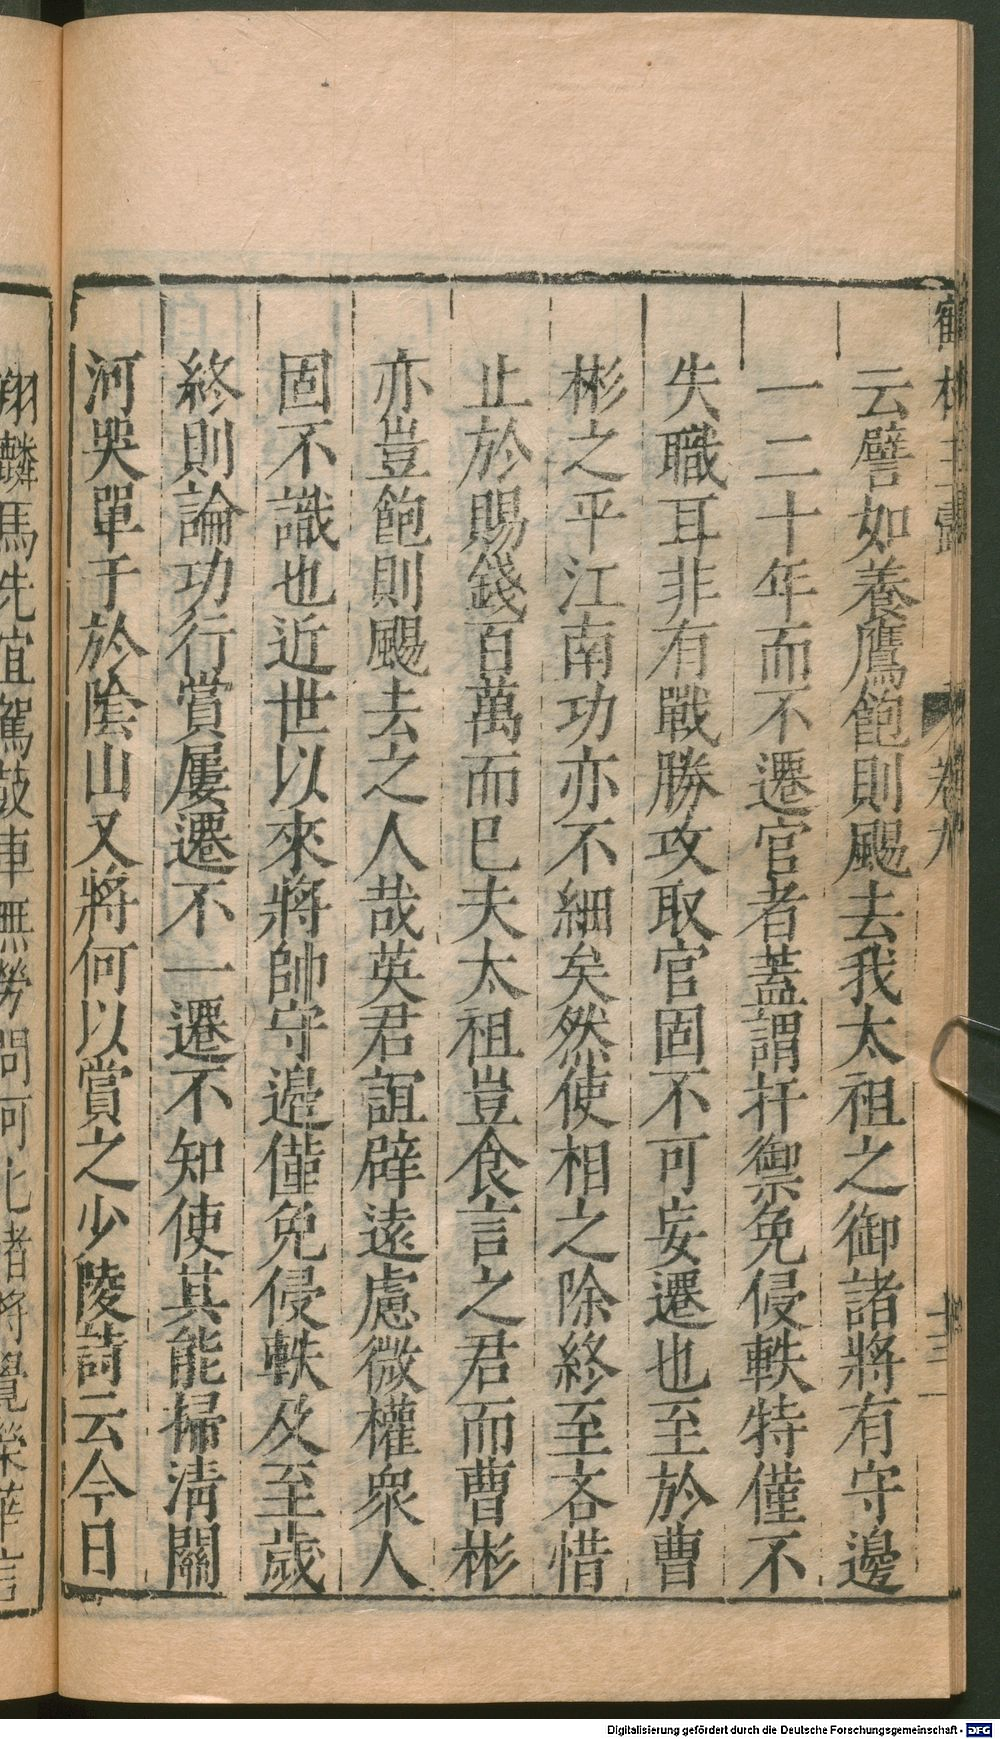 鶴林玉露
卷九
十三
云譬如養鷹飽則颺去我太祖之御諸將有守邊
一二十年而不遷官者蓋謂扞禦免侵軼特僅不
失職耳非有戰勝攻取官固不可妄遷也至於曹
彬之平江南功亦不細矣然使相之除終至吝惜
止於賜錢百萬而已夫太祖豈食言之君而曹彬
亦豈飽則颺去之人哉英君誼辟遠慮微權衆人
固不識也近世以來將帥守邊僅免侵軼及至歲
終則論功行賞屢遷不一遷不知使其能掃清關
河哭單于於陰山又將何以賞之少陵詩云今日
翔麟馬先宜駕鼓車無勞問河北諸將覺榮華言
Digitalisierung gefördert durch die Deutsche Forschungsgemeinschaft - DFG